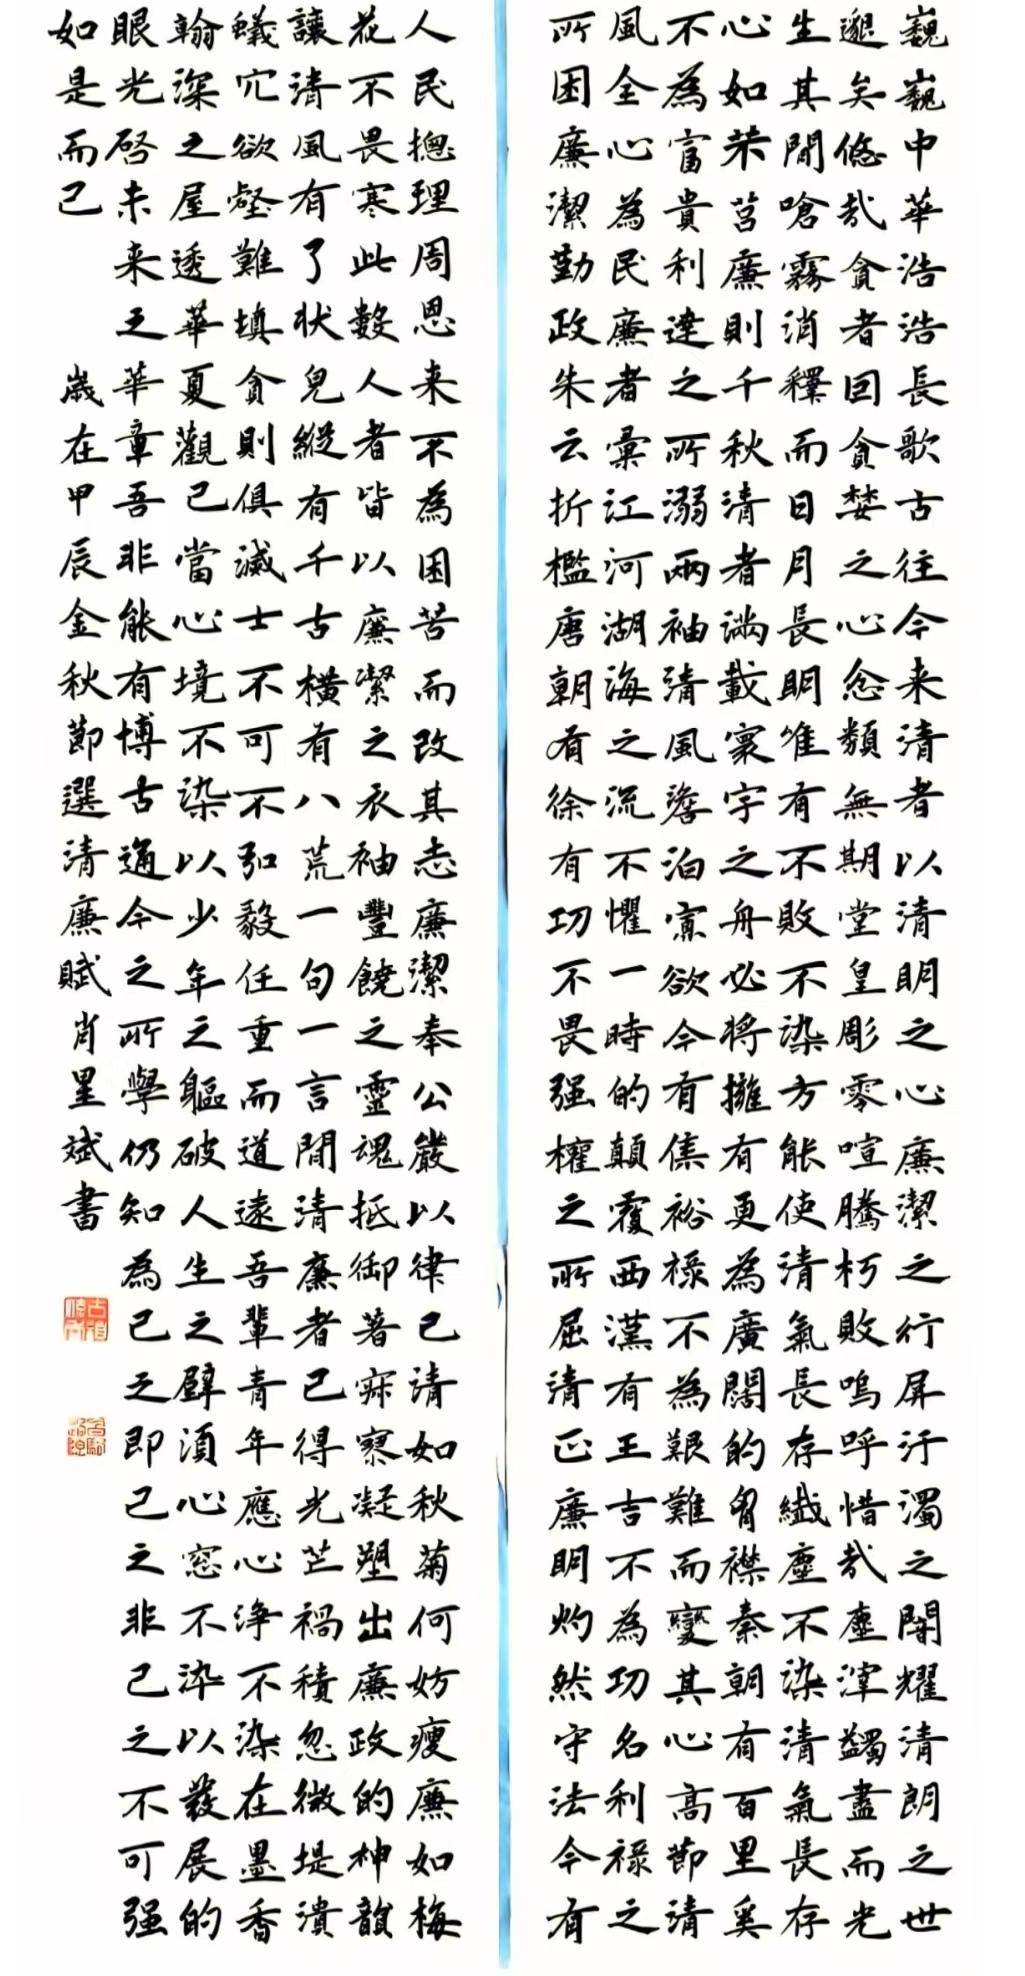 巍巍中華浩浩長歌古往今来清者以清明之心廉潔之行屏汙濁之鬧耀清朗之世
邈矣悠哉貪者回貪婪之心忿纇無期堂皇彫零喧騰朽敗嗚呼惜哉塵滓蠲盡而光
生其間嗆霧消釋而日月長明唯有不敗不染方能使清氣長存纖塵不染清氣長存
心如茉莒廉則千秋清者滿載寰宇之舟必將擁有更為廣闊的胷襟秦朝有百里奚
不為富貴利達之所溺兩袖清風澹泊寡欲今有雋裕禄不為艱難而變其心高節清
風全心為民廉者彙江河湖海之流不懼一時的顛覆西漢有王吉不為功名利禄之
所困廉潔勤政朱云折檻唐朝有徐有功不畏强權之所屈清正廉明灼然守法今有
人民揔理周恩来不為困苦而改其志廉潔奉公嚴以律己清如秋菊何妨瘦廉如梅
花不畏寒此数人者皆以廉潔之衣袖豐饒之靈魂抵御著寂寥凝塑出廉政的神韻
讓清風有了状皃縱有千古横有八荒一句一言間清廉者已得光芒禍積忽微堤潰
蟻穴欲壑難填貪則俱滅士不可不弘毅任重而道遠吾輩青年應心浄不染在墨香
翰深之屋透華夏觀已當心境不染以少年之軀破人生之壁須心窓不染以發展的
眼光啓未来之華章吾非能有博古通今之所學仍知為己之即己之非己之不可强
如是而已
歲在甲辰金秋節選清廉賦肖星斌書